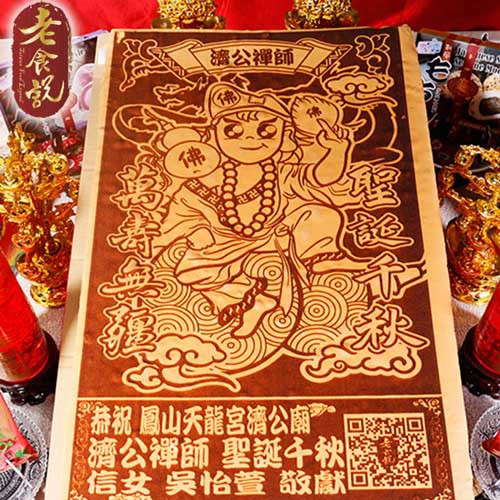 老食說
濟公禪師
佛
佛
佛
萬壽無疆
聖誕千秋
恭祝 鳳山天龍宮濟公廟
濟公禪師 聖誕千秋
信女 吳怡萱 敬獻